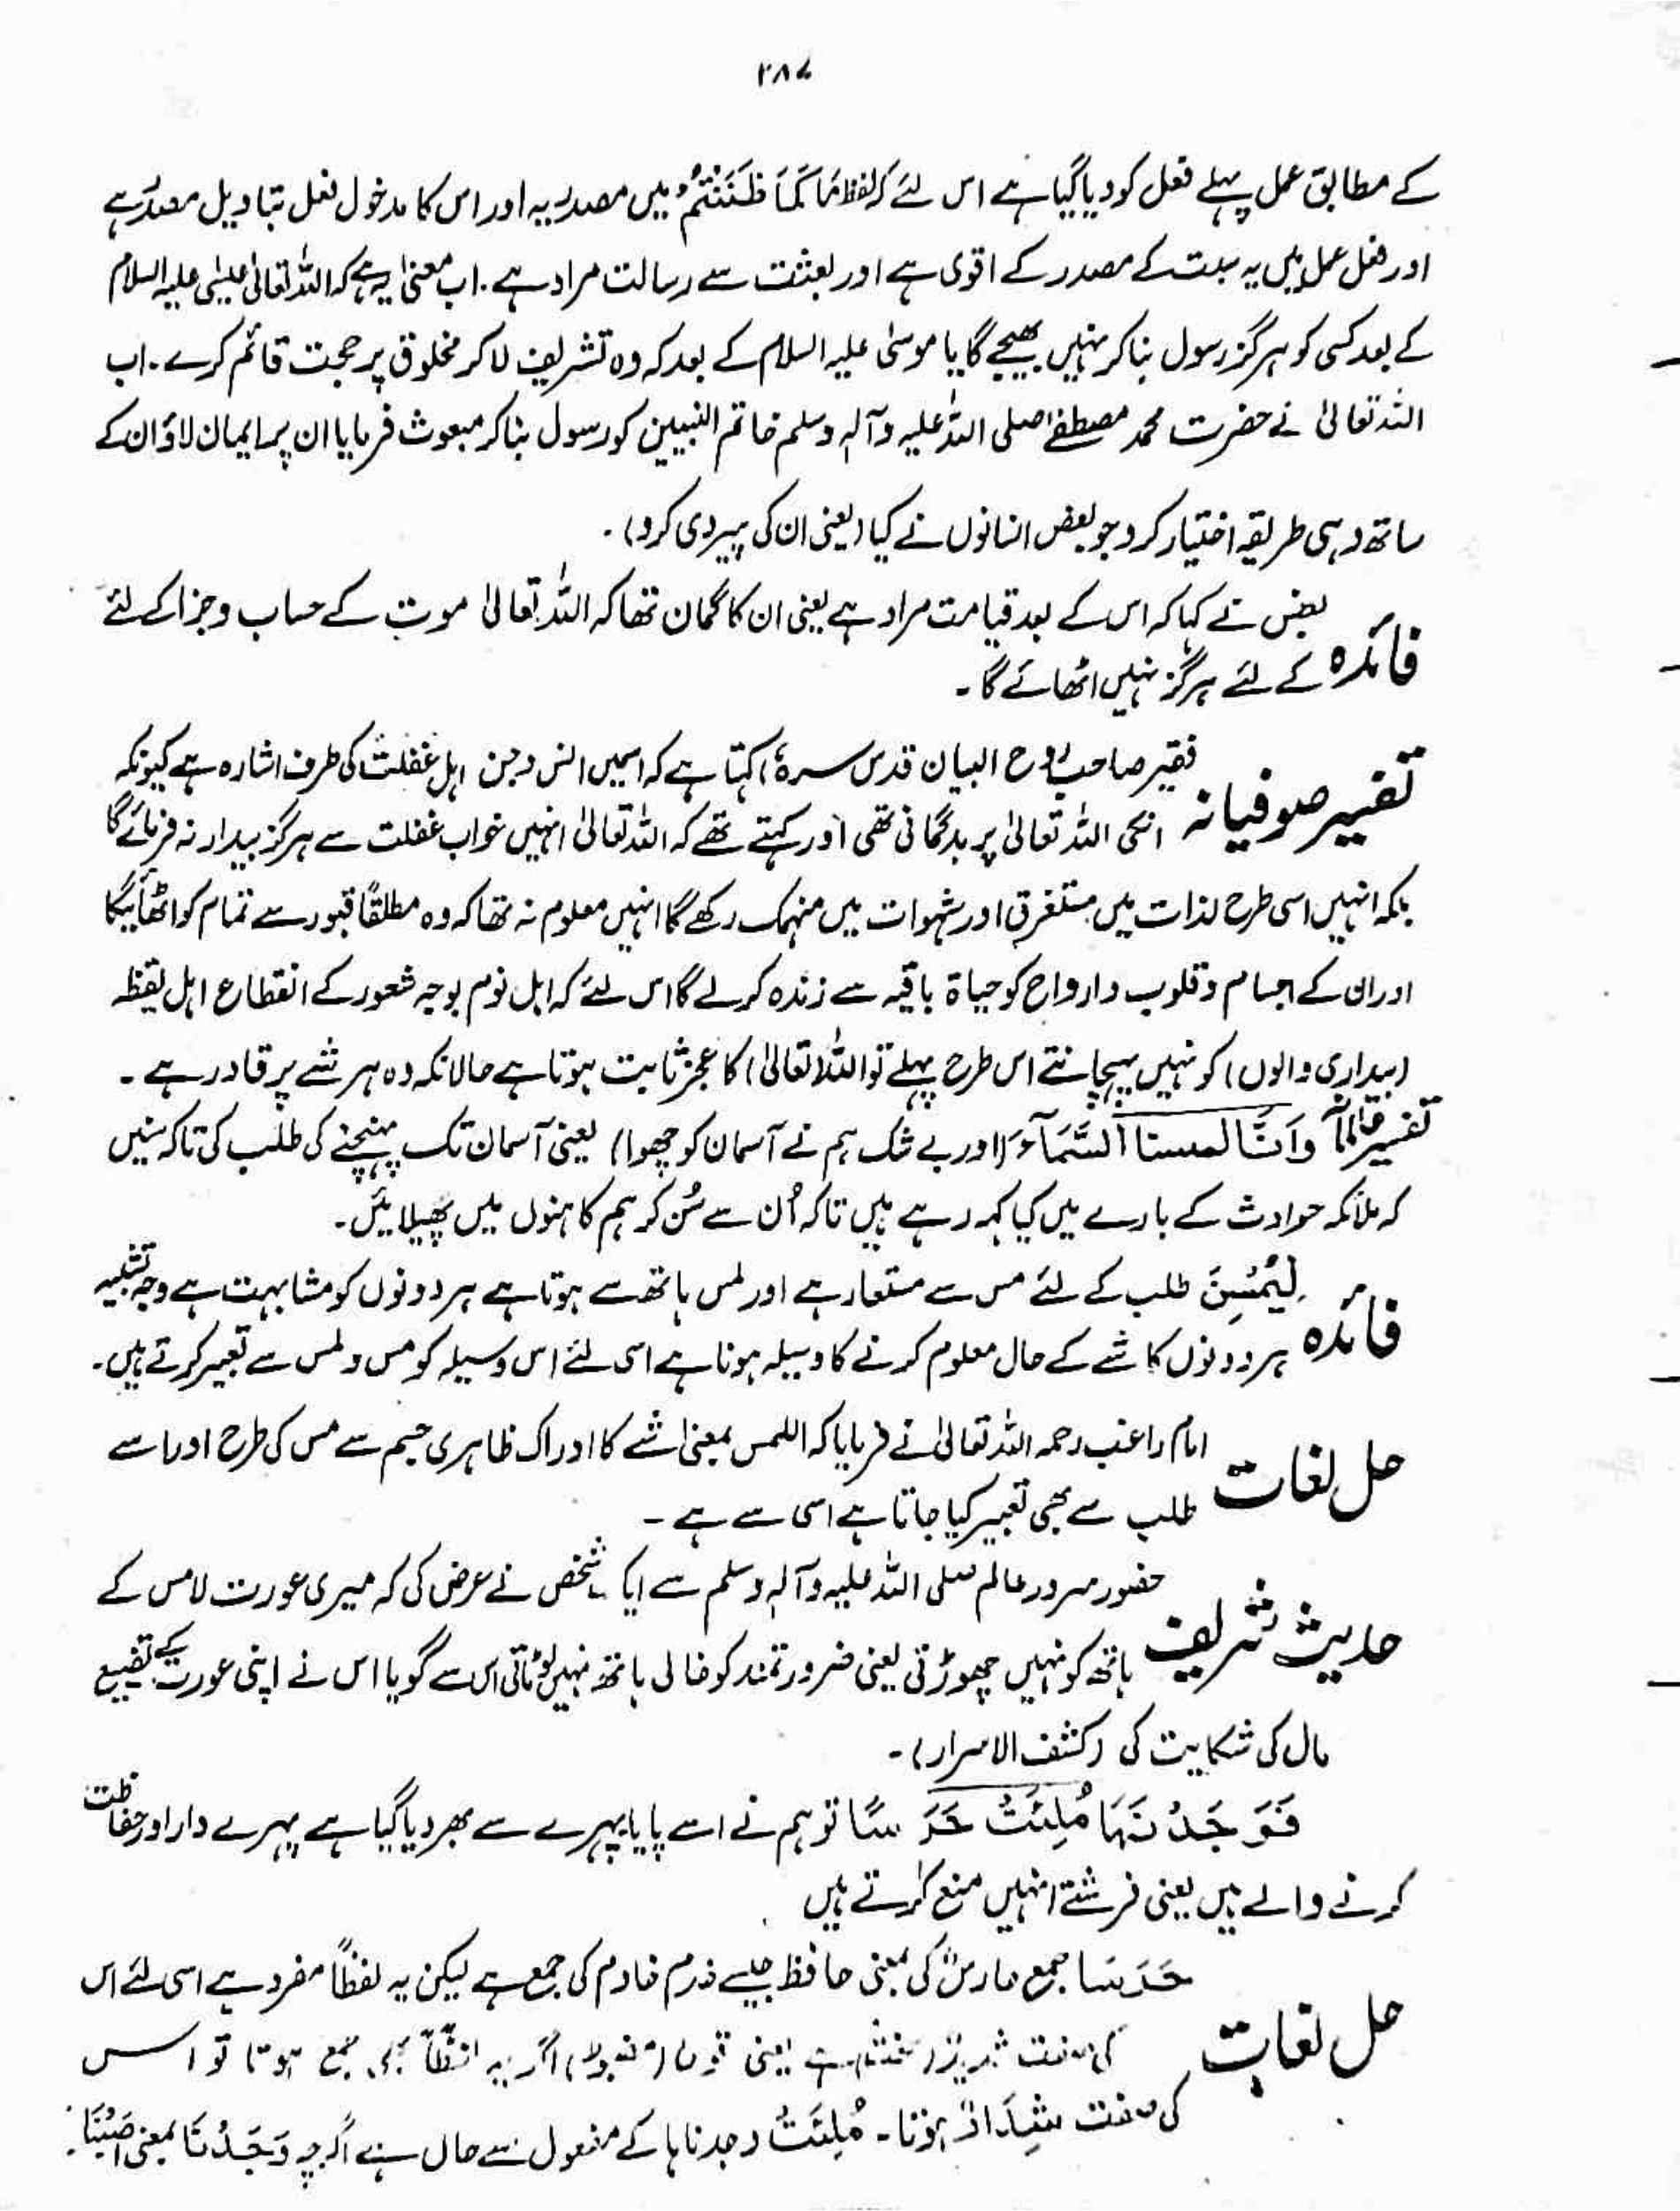 ۲۸۷
کے مطابق عمل پہلے فعل کو دیا گیا ہے اس لئے کہ لفظ مَا کَمَا ظَنَنْتُمْ میں مصدریہ اور اس کا مدخول فعل بتاویل مصدر ہے
اور فعل عمل میں بہ نسبت کے مصدر کے اقوی ہے اور بعثت سے رسالت مراد ہے۔ اب معنیٰ یہ ہے کہ اللہ تعالیٰ عیسٰی علیہ السلام
کے بعد کسی کو ہرگز رسول بنا کر نہیں بھیجے گا یا موسٰی علیہ السلام کے بعد کہ وہ تشریف لا کر مخلوق پر حجت قائم کرے۔ اب
اللہ تعالیٰ نے حضرت محمد مصطفےٰ صلی اللہ علیہ وآلہ وسلم خاتم النبیین کو رسول بنا کر مبعوث فرمایا ان پر ایمان لاؤ ان کے
ساتھ وہی طریقہ اختیار کرو جو بعض انسانوں نے کیا (یعنی ان کی پیروی کرو)۔
بعض نے کہا کہ اس کے بعد قیامت مراد ہے یعنی ان کا گمان تھا کہ اللہ تعالیٰ موت کے حساب و جزا کے لئے
فائدہ کے لئے ہرگز نہیں اٹھائے گا۔
تفسیر صوفیانہ فقیر صاحب روح البیان قدس سرہٗ) کہتا ہے کہ اسمیں انس و جن اہل غفلت کی طرف اشارہ ہے کیونکہ
انکی اللہ تعالیٰ پر بدگمانی تھی اور کہتے تھے کہ اللہ تعالیٰ انہیں خواب غفلت سے ہرگز بیدار نہ فرمائے گا
بلکہ انہیں اسی طرح لذات میں مستغرق اور شہوات میں منہمک رکھے گا انہیں معلوم نہ تھا کہ وہ مطلقًا قبور سے تمام کو اٹھائیگا
اور ان کے اجسام و قلوب و ارواح کو حیاۃ باقیہ سے زندہ کرلے گا اس لئے کہ اہل نوم بوجہ شعور کے انقطاع اہل یقظہ
(بیداری والوں) کو نہیں پہچانتے اس طرح پہلے تو اللہ تعالیٰ) کا عجز ثابت ہوتا ہے حالانکہ وہ ہر شے پر قادر ہے۔
تفسیر عالمانہ وَاَنَّا لمسنا السَّمَآءَ (اور بے شک ہم نے آسمان کو چھوا) یعنی آسمان تک پہنچنے کی طلب کی تاکہ سنیں
کہ ملائکہ حوادث کے بارے میں کیا کہہ رہے ہیں تاکہ اُن سے سُن کر ہم کاہنوں میں پھیلائیں۔
فائدہ لَمْس طلب کے لئے مس سے مستعار ہے اور لمس ہاتھ سے ہوتا ہے ہر دونوں کو مشابہت ہے وجہ تشبیہ
ہر دونوں کا شے کے حال معلوم کرنے کا وسیلہ ہونا ہے اسی لئے اس وسیلہ کو مس و لمس سے تعبیر کرتے ہیں۔
حل لغات امام راغب رحمہ اللہ تعالیٰ نے فرمایا کہ اللمس بمعنیٰ شے کا ادراک ظاہری جسم سے مس کی طرح اور اسے
طلب سے بھی تعبیر کیا جاتا ہے اسی سے ہے۔
حدیث شریف حضور سرور عالم صلی اللہ علیہ وآلہ وسلم سے ایک شخص نے عرض کی کہ میری عورت لامس کے
ہاتھ کو نہیں چھوڑتی یعنی ضرورتمند کو خالی ہاتھ نہیں لوٹاتی اس سے گویا اس نے اپنی عورت کے تضییع
مال کی شکایت کی (کشف الاسرار)۔
فَوَجَدْنٰهَا مُلِئَتْ حَرَسًا تو ہم نے اسے پایا پہرے سے بھر دیا گیا ہے پہرے دار اور حفاظت
کرنے والے ہیں یعنی فرشتے انہیں منع کرتے ہیں
حل لغات حَرَسًا جمع حارسٌ کی بمعنی حافظ جیسے خدم خادم کی جمع ہے لیکن یہ لفظاً مفرد ہے اسی لئے اس
کی صفت شدید ہے یعنی قوی (مضبوط) اگر یہ لفظًا بھی جمع ہوتا تو اس
کی صفت شِدَادٌ ہوتا۔ مُلِئَتْ وجدناہا کے مفعول سے حال ہے اگرچہ وَجَدْنَا بمعنی اَصَبْنَا